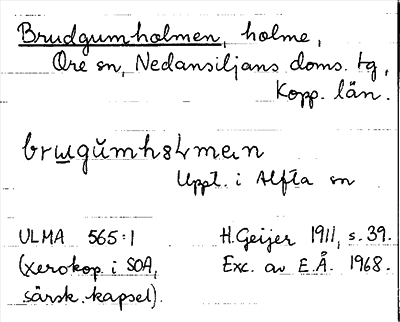 Brudgumholmen, holme,
Ore sn, Nedansiljans doms. tg,
Kopp. län.
Uppt. i Alfta sn
ULMA 565:1 H. Geijer 1911, s. 39.
(xerokop. i SOA, Exc. av E.Å. 1968.
särsk. kapsel).